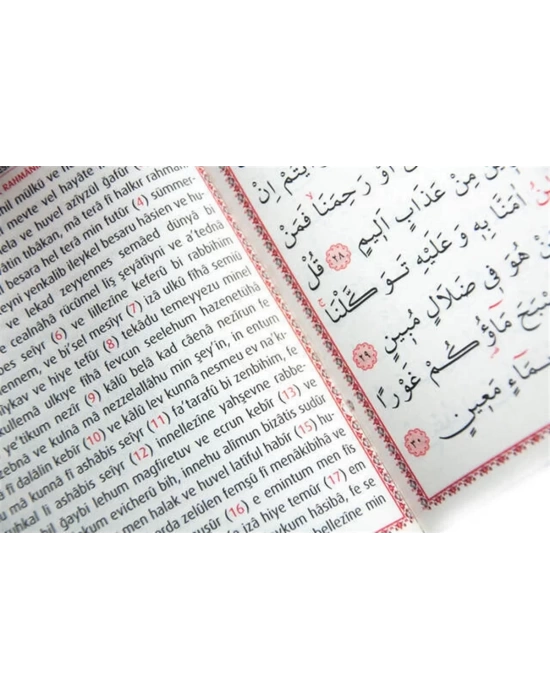 RAHMANİ
mil mülkü ve
meyte vel hayate
ela ve huvel azîyzül gafûr
vâtin tıbâkan, mâ terâ fî halkır rahmâ
besara hel terâ min futûr (4) sümmer-
teyni yenkalib ileykel besaru hâsien ve hu-
ve lekad zeyyennes semâed dünyâ bi
ve cealnâhâ rücûmel liş şeyâtîyni ve a'tednâ
bes seiyr (6) ve lillezîne keferû bi rabbihim
ennem, ve bi'sel mesîyr (7) izâ ulkû fîhâ semiû
ıykav ve hiye tefûr (8) tekâdu temeyyezu minel
kullemâ ulkıye fîhâ fevcun seelehum hazenetühâ
e'tikum nezîr (9) kâlû belâ kad câenâ nezîrun fe
zebnâ ve kulnâ mâ nezzelallâhu min şey'in, in entum
â fî dalâlin kebîr (10) ve kâlû lev kunnâ nesmeu ev na'kı-
mâ kunnâ fî ashâbis seiyr (11) fa'terafû bi zenbihim, fe
uhkal li ashâbis seiyr (12) innellezîne yahşevne rabbe-
bil ğaybi lehum mağfiretuv ve ecrun kebîr (13) ve
kum evicherû bih, innehu alîmun bizâtis sudûr
men halak ve huvel latîful habîr (15) hu-
arda zelûlen femşû fî menâkibihâ ve
nuşûr (16) e emintum men fis
izâ hiye temûr (17) em
aykum hâsibâ, fe se
bellezîne min
اَوْ رَحِمَنَا فَمَنْ
مِنْ عَذَابٍ اَلِيمٍ ﴿٢٨﴾ قُلْ
اٰمَنَّا بِهِ وَعَلَيْهِ تَوَكَّلْنَا
هُوَ فِي ضَلَالٍ مُبِينٍ ﴿٢٩﴾
مَاؤُكُمْ غَوْرًا
مَعِينٍ ﴿٣٠﴾